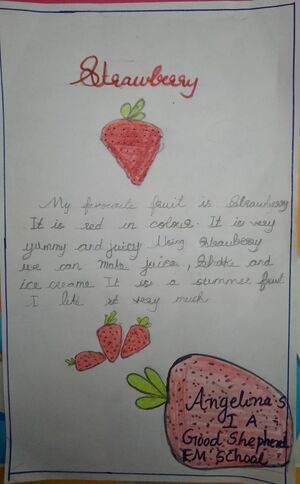 Strawberry
My favocate fruit is Strawberry
It is red in colour. It is very
yummy and juicy Using Strawberry
we can make juice, Shake and
ice creame It is a summer fruit
I like it very much
Angelina s
I A
Good Shepherd
EM School